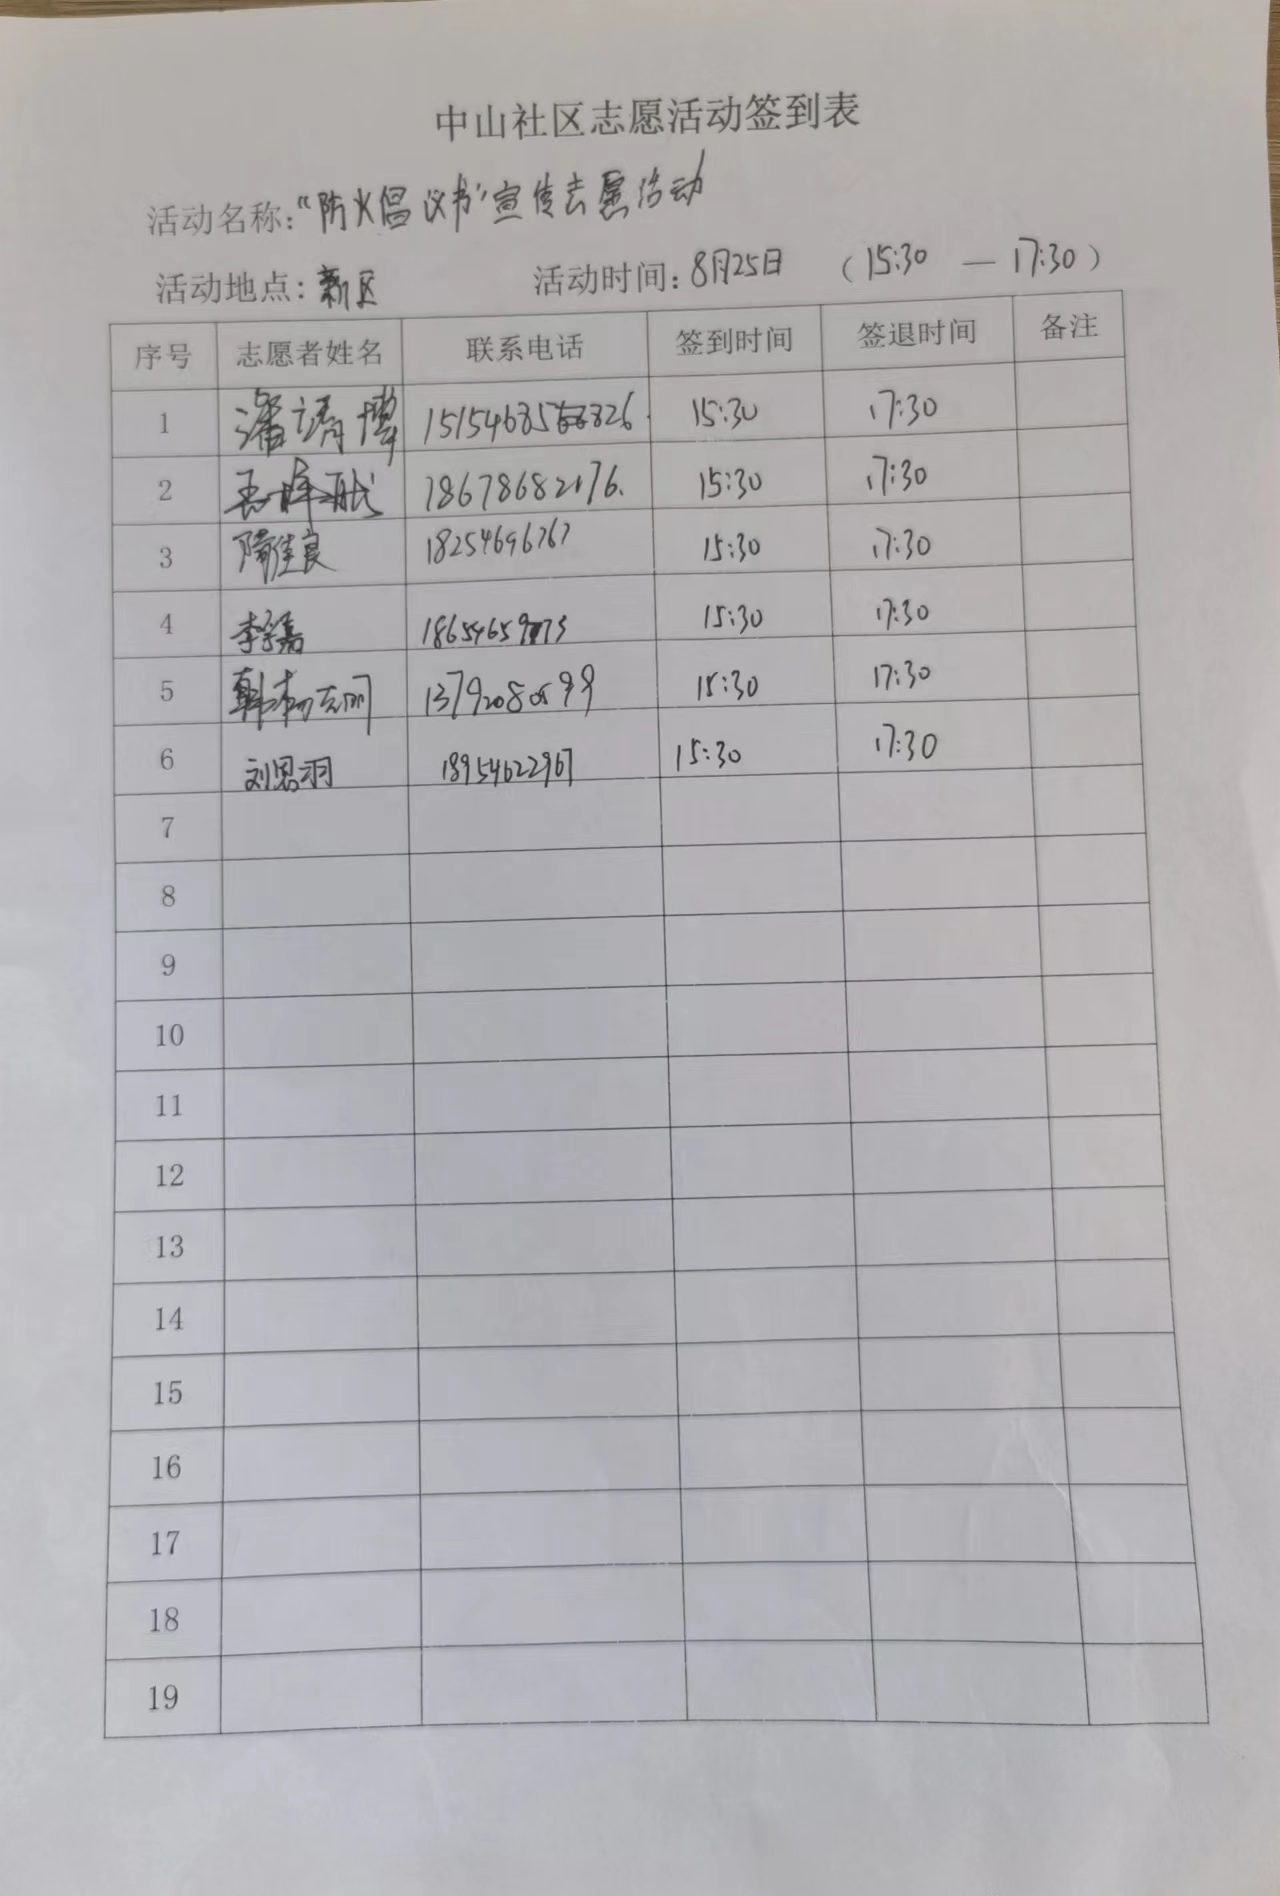 中山社区志愿活动签到表
活动名称:“防火倡议书”宣传志愿活动
活动地点: 新区 活动时间: 8月25日 (15:30 — 17:30)
序号 志愿者姓名 联系电话 签到时间 签退时间 备注
1 潘靖博 15:30 17:30
2 18678682176. 15:30 17:30
3 隋佳良 18254696767 15:30 17:30
4 李学嘉 15:30 17:30
5 韩杨志明 13792080599 15:30 17:30
6 刘恩羽 18954622967 15:30 17:30
7
8
9
10
11
12
13
14
15
16
17
18
19